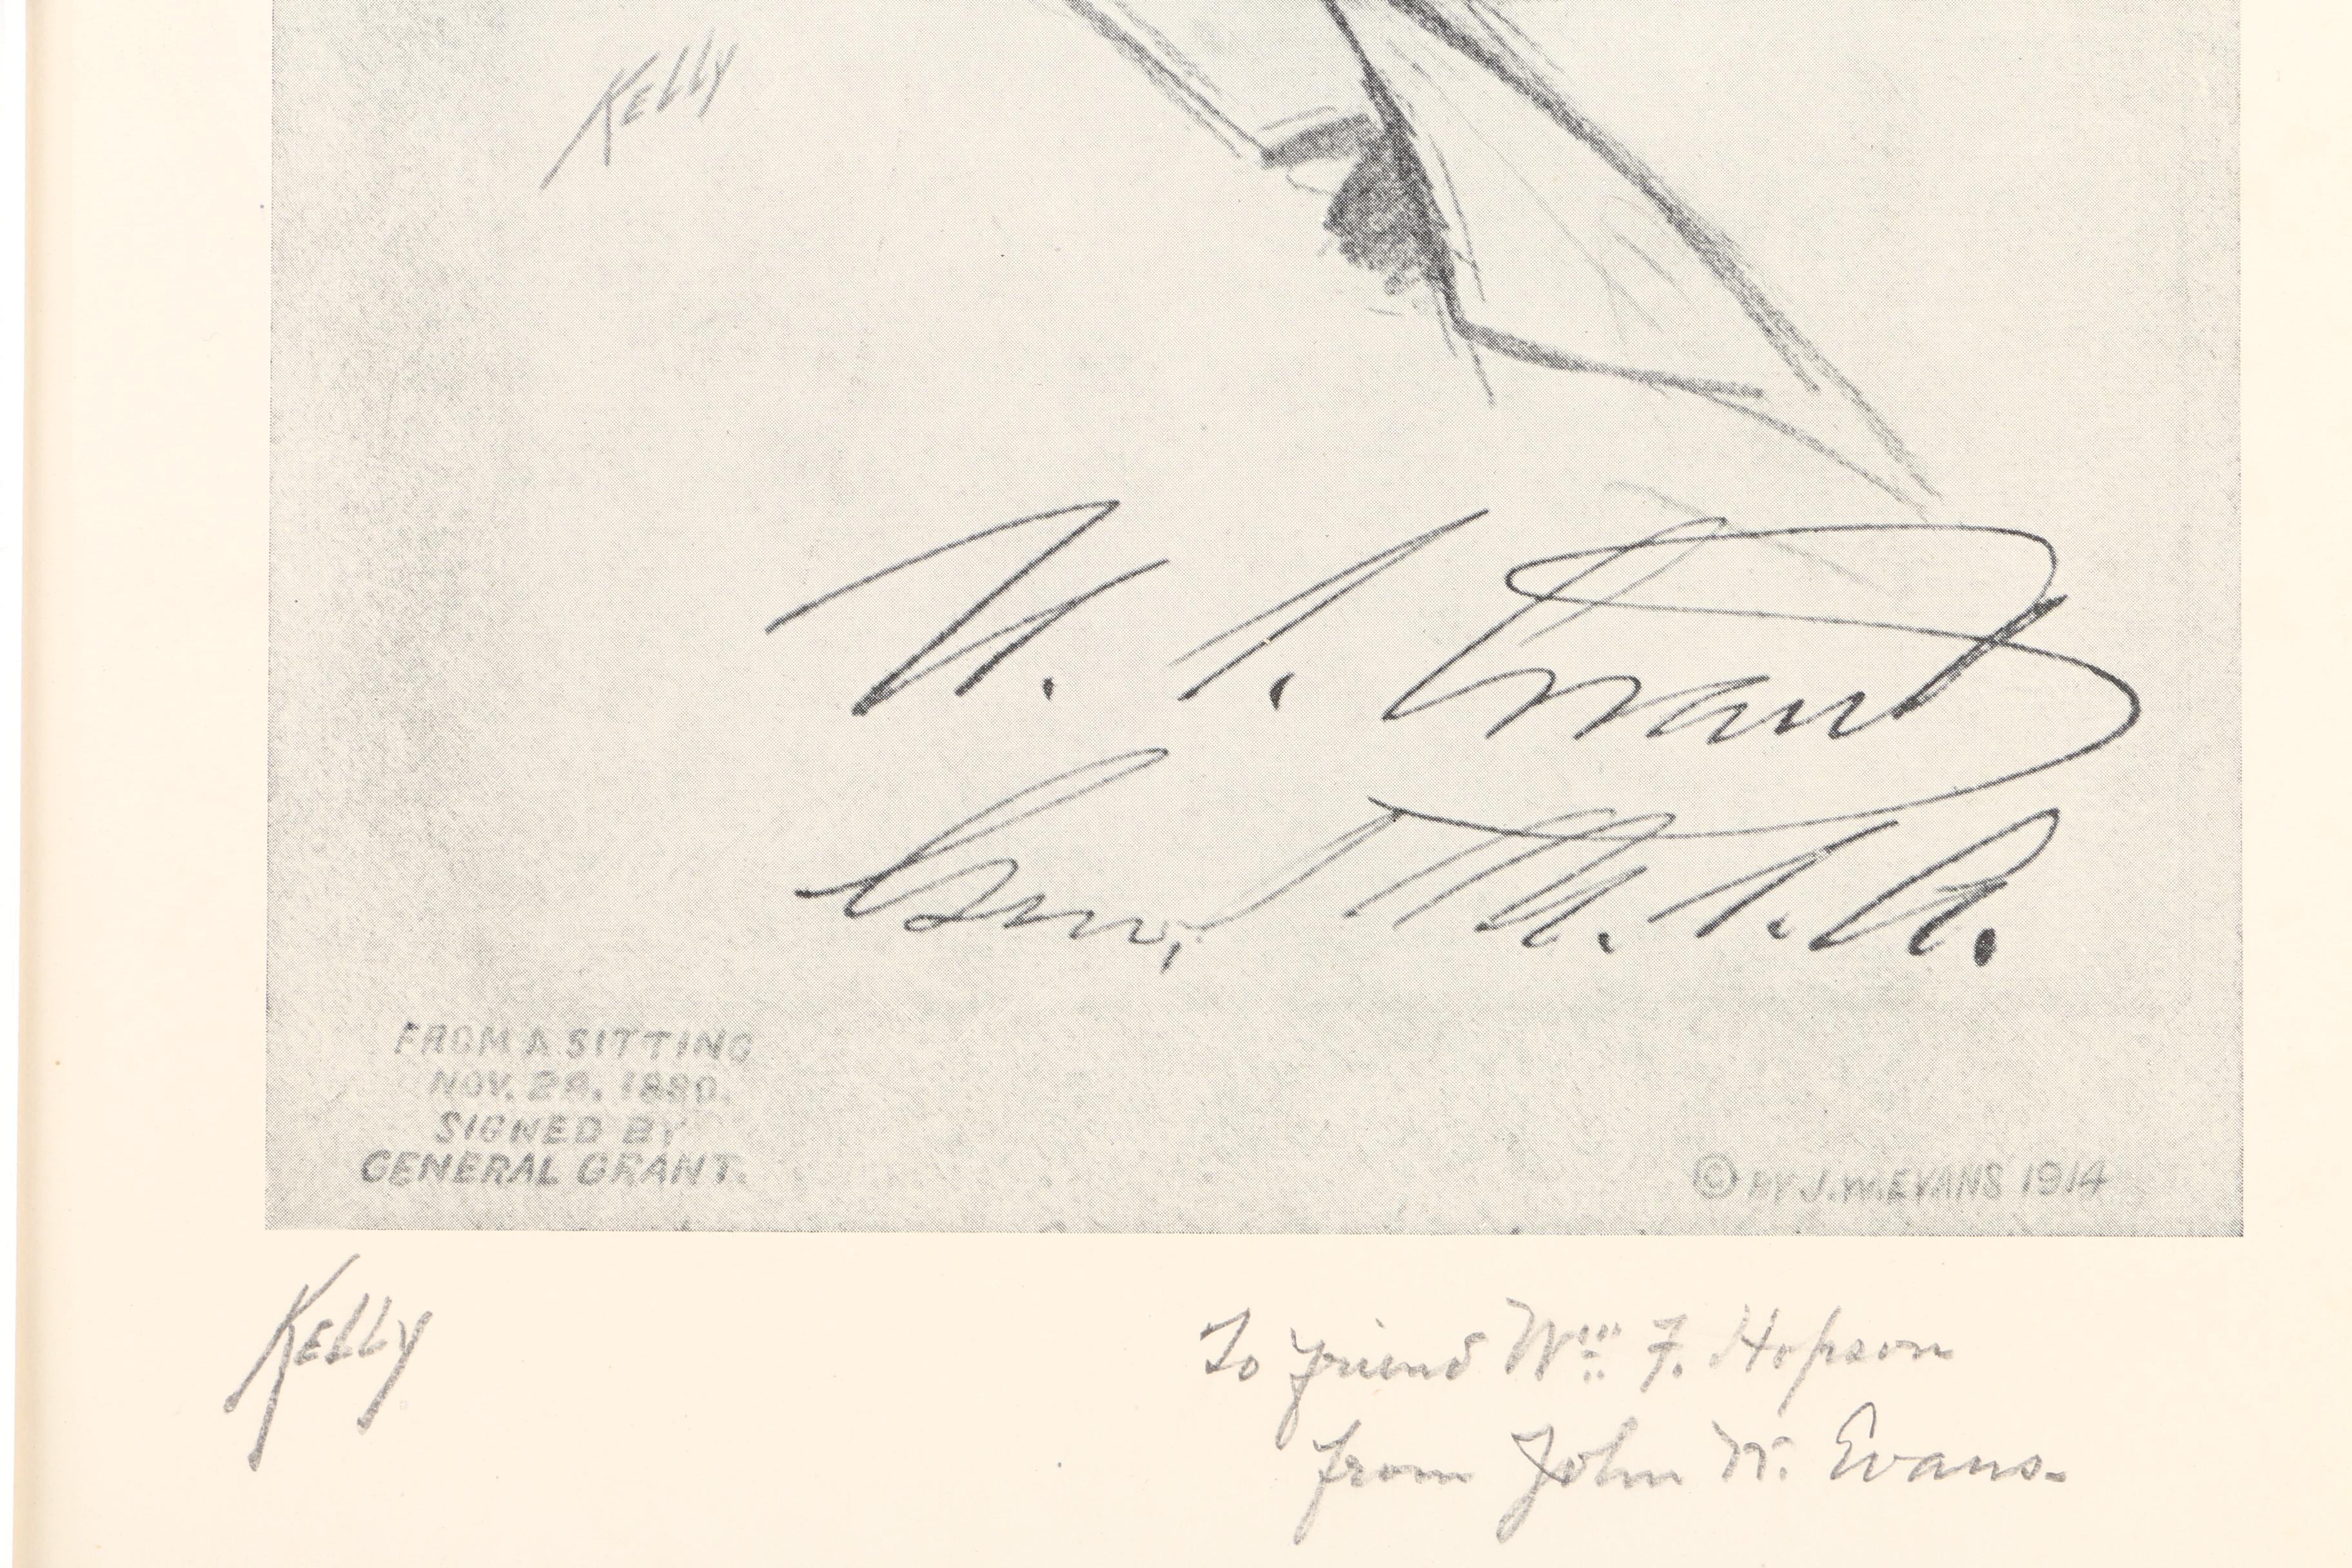 KELLY
U. S. Grant
Genl, U. S. A.
FROM A SITTING
NOV. 28, 1880.
SIGNED BY
GENERAL GRANT.
© BY J.W. EVANS 1914
KELLY
To friend Wm. F. Hopson
from John W. Evans.